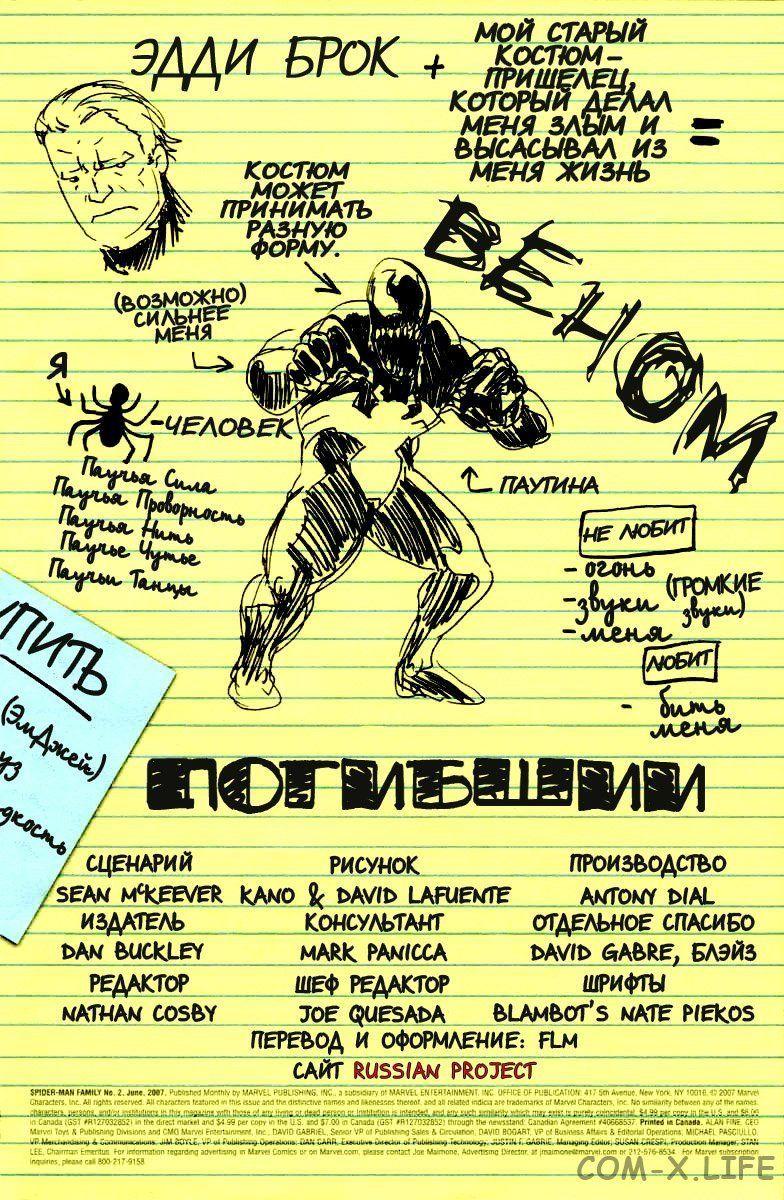 ЭДДИ БРОК +
МОЙ СТАРЫЙ
КОСТЮМ-
ПРИШЕЛЕЦ,
КОТОРЫЙ ДЕЛАЛ
МЕНЯ ЗЛЫМ И
ВЫСАСЫВАЛ ИЗ
МЕНЯ ЖИЗНЬ
=
ВЕНОМ
КОСТЮМ
МОЖЕТ
ПРИНИМАТЬ
РАЗНУЮ
ФОРМУ.
(ВОЗМОЖНО)
СИЛЬНЕЕ
МЕНЯ
Я
-ЧЕЛОВЕК
Паучья Сила
Паучья Проворность
Паучья Нить
Паучье Чутье
Паучьи Танцы
ПАУТИНА
НЕ ЛЮБИТ
- огонь
- звуки (ГРОМКИЕ
звуки)
- меня
ЛЮБИТ
- бить
меня
УПИТЬ
(ЭмДжей)
уз
дкость
ПОГИБШИЙ
СЦЕНАРИЙ РИСУНОК ПРОИЗВОДСТВО
SEAN McKEEVER KANO & DAVID LAFUENTE ANTONY DIAL
ИЗДАТЕЛЬ КОНСУЛЬТАНТ ОТДЕЛЬНОЕ СПАСИБО
DAN BUCKLEY MARK PANICCA DAVID GABRE, БЛЭЙЗ
РЕДАКТОР ШЕФ РЕДАКТОР ШРИФТЫ
NATHAN COSBY JOE QUESADA BLAMBOT'S NATE PIEKOS
ПЕРЕВОД И ОФОРМЛЕНИЕ: FLM
САЙТ RUSSIAN PROJECT
SPIDER-MAN FAMILY No. 2, June, 2007. Published Monthly by MARVEL PUBLISHING, INC., a subsidiary of MARVEL ENTERTAINMENT, INC. OFFICE OF PUBLICATION: 417 5th Avenue, New York, NY 10016. © 2007 Marvel
Characters, Inc. All rights reserved. All characters featured in this issue and the distinctive names and likenesses thereof, and all related indicia are trademarks of Marvel Characters, Inc. No similarity between any of the names,
characters, persons, and/or institutions in this magazine with those of any living or dead person or institution is intended, and any such similarity which may exist is purely coincidental. $4.99 per copy in the U.S. and $6.00
in Canada (GST #R127032852) in the direct market and $4.99 per copy in the U.S. and $7.00 in Canada (GST #R127032852) through the newsstand; Canadian Agreement #40668537. Printed in Canada. ALAN FINE, CEO
Marvel Toys & Publishing Divisions and CMO Marvel Entertainment, Inc.; DAVID GABRIEL, Senior VP of Publishing Sales & Circulation; DAVID BOGART, VP of Business Affairs & Editorial Operations; MICHAEL PASCIULLO,
VP Merchandising & Communications; JIM BOYLE, VP of Publishing Operations; DAN CARR, Executive Director of Publishing Technology; JUSTIN F. GABRIE, Managing Editor; SUSAN CRESPI, Production Manager; STAN
LEE, Chairman Emeritus. For information regarding advertising in Marvel Comics or on Marvel.com, please contact Joe Maimone, Advertising Director, at jmaimone@marvel.com or 212-576-8534. For Marvel subscription
inquiries, please call 800-217-9158.
COM-X.LIFE